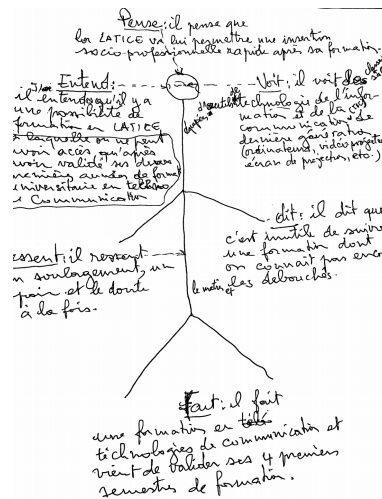 Pense: il pense que
la LATICE va lui permettre une insertion
socio-professionnelle rapide après sa formation.
Entend:
il entend qu'il y a
une possibilité de
formation en LATICE
à laquelle on ne peut
avoir accès qu'après
avoir validé ses deux
premières années de format
universitaire en techno
Communication
Voit: il voit des
technologie de l'infor-
mation et de la
communication de
dernière génération
(ordinateurs, vidéo projecteur
écran de projection, etc.)
dit: il dit que
c'est inutile de suivre
une formation dont
on connaît pas enco
les débouchés.
le matin et
essent: il ressent
un soulagement, un
poir et le doute
à la fois.
Fait: il fait
une formation en télé
technologies de communication et
vient de valider ses 4 premiers
semestres de formation.